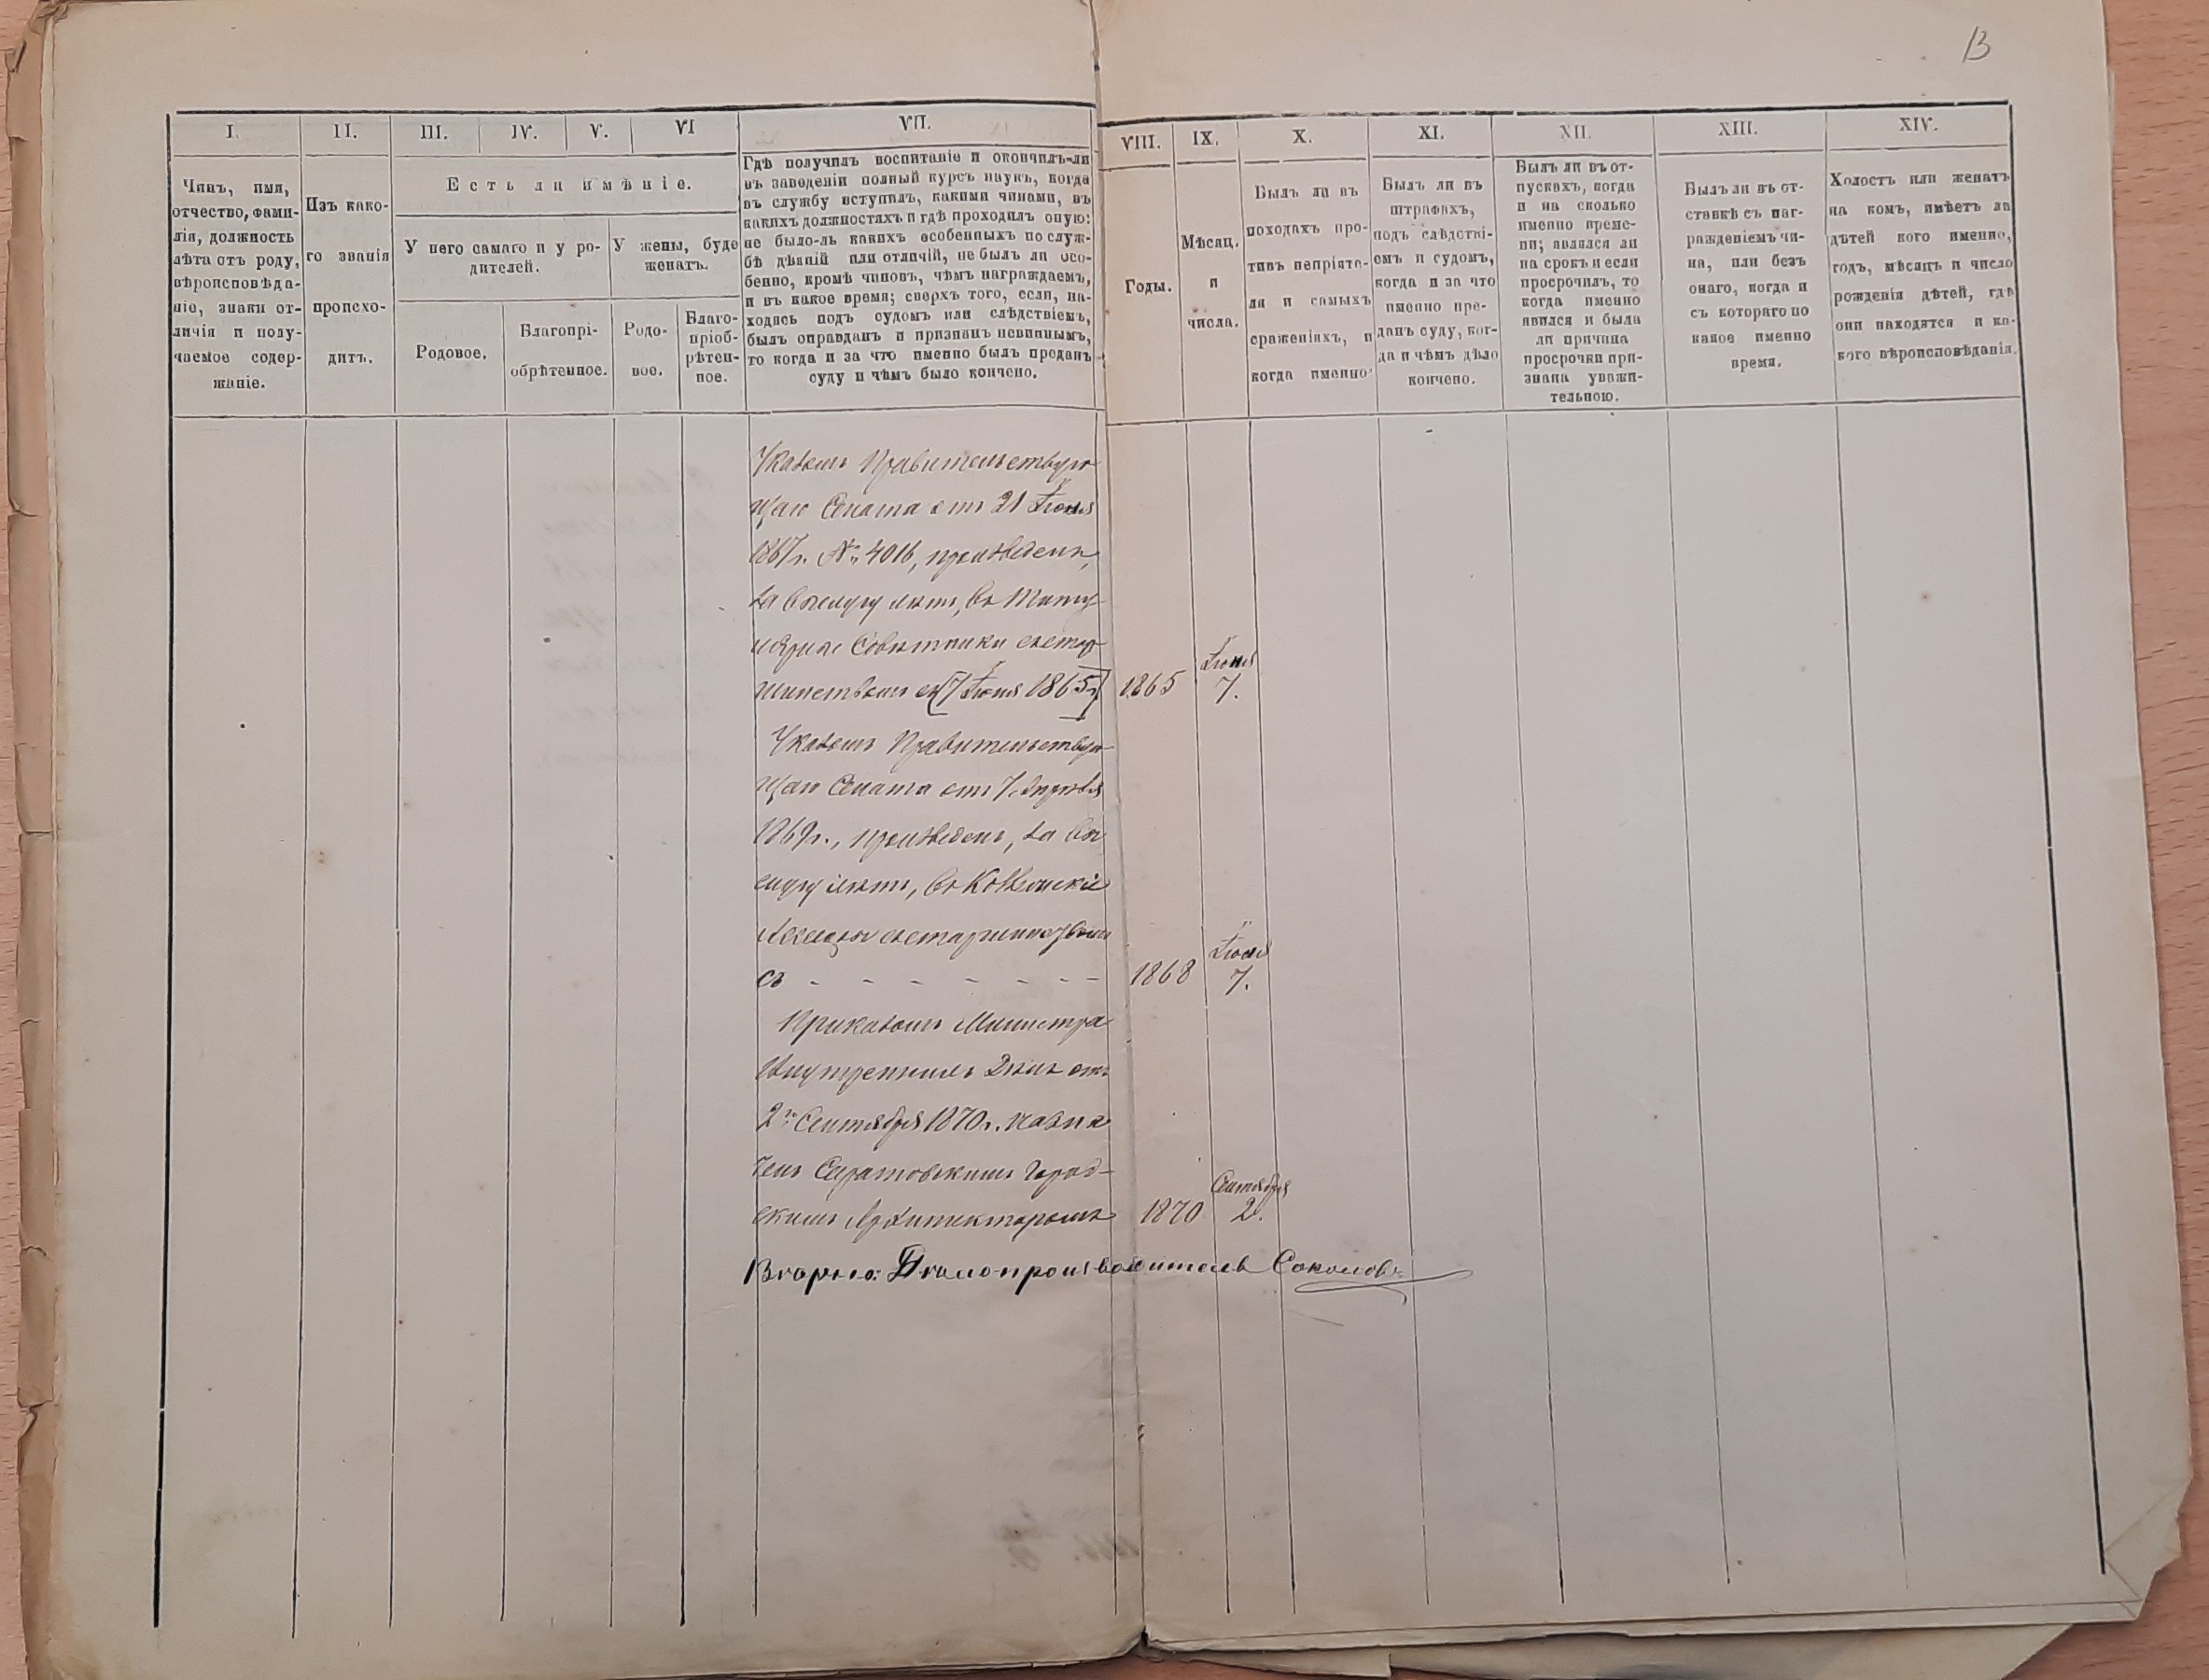 13
I.
II.
III.
IV.
V.
VI
VII.
VIII.
IX.
X.
XI.
XII.
XIII.
XIV.
Чинъ, имя,
отчество, фами-
лія, должность
лѣта отъ роду,
вѣроисповѣда-
ніе, знаки от-
личія и полу-
чаемое содер-
жаніе.
Изъ како-
го званія
происхо-
дитъ.
Есть ли имѣніе.
У него самаго и у ро-
дителей.
У жены, буде
женатъ.
Родовое.
Благопрі-
обрѣтенное.
Родо-
вое.
Благо-
пріоб-
рѣтен-
ное.
Гдѣ получилъ воспитаніе и окончилъ-ли
въ заведеніи полный курсъ наукъ, когда
въ службу вступилъ, какими чинами, въ
какихъ должностяхъ и гдѣ проходилъ оную:
не было-ль какихъ особенныхъ по служ-
бѣ дѣяній или отличій, не былъ ли осо-
бенно, кромѣ чиновъ, чѣмъ награждаемъ,
и въ какое время; сверхъ того, если, на-
ходясь подъ судомъ или слѣдствіемъ,
былъ оправданъ и признанъ невиннымъ,
то когда и за что именно былъ преданъ
суду и чѣмъ было кончено.
Годы.
Мѣсяц.
и
числа.
Былъ ли въ
походахъ про-
тивъ непріяте-
ля и самыхъ
сраженіяхъ, и
когда именно
Былъ ли въ
штрафахъ,
подъ слѣдстві-
емъ и судомъ,
когда и за что
именно пре-
данъ суду, ког-
да и чѣмъ дѣло
кончено.
Былъ ли въ от-
пускахъ, когда
и на сколько
именно време-
ни; являлся ли
на срокъ и если
просрочилъ, то
когда именно
явился и была
ли причина
просрочки при-
знана уважи-
тельною.
Былъ ли въ от-
ставкѣ съ наг-
ражденіемъ чи-
на, или безъ
онаго, когда и
съ котораго по
какое именно
время.
Холостъ или женатъ
на комъ, имѣетъ ли
дѣтей кого именно,
годъ, мѣсяцъ и число
рожденія дѣтей, гдѣ
они находятся и ка-
кого вѣроисповѣданія.
Указомъ Правительствую
щаго Сената отъ 21 Іюня
1867 г. № 4016, произведенъ,
за выслугу лѣтъ, въ Титу-
лярные Совѣтники состар-
шинствомъ съ [7 Іюня 1865 г.]
1865
Іюня
7.
Указомъ Правительствую
щаго Сената отъ 7 Апрѣля
1869 г., произведенъ, за вы
слугу лѣтъ, въ Коллежскіе
Ассесоры состаршинствомъ
съ - - - - - - -
1868
Іюня
7.
Приказомъ Министра
Внутреннихъ Дѣлъ отъ
2го Сентября 1870 г. назна
ченъ Саратовскимъ Город-
скимъ Архитекторомъ
1870
Сентября
2.
Вѣрно: Дѣлопроизводитель Соколовъ